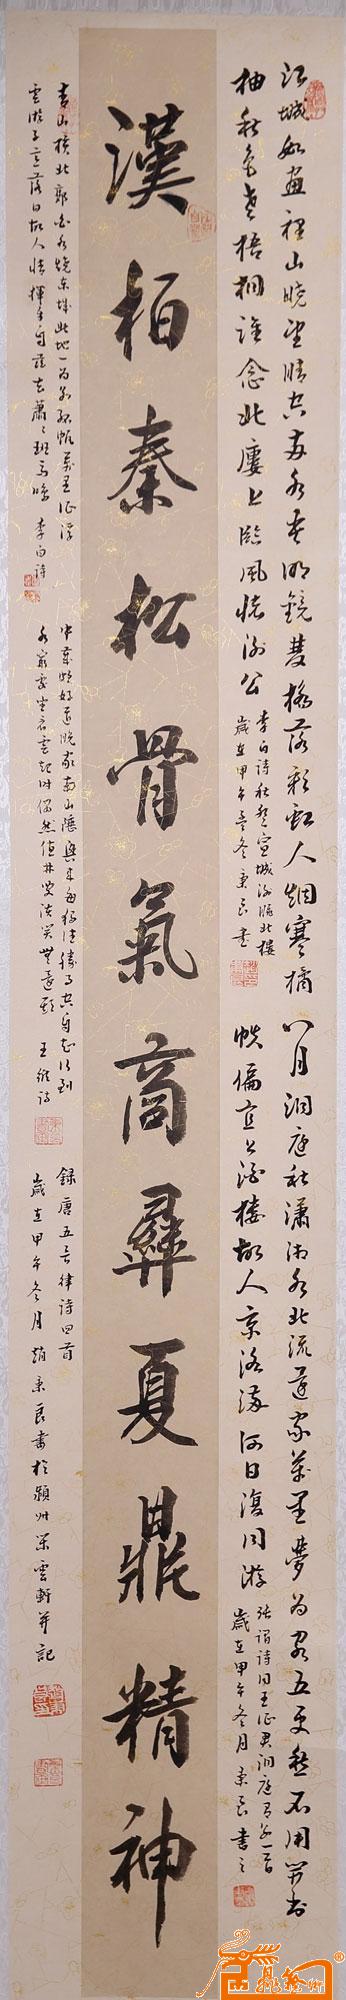 江城如畫裡山曉望晴空兩水夾明鏡雙橋落彩虹人烟寒橘
柚秋色老梧桐誰念北廔上臨風懷謝公
李白詩秋登宣城謝脁北樓
歲在甲午之冬秉良書
八月洞庭秋瀟湘水北流還家萬里夢為客五更愁不用開書
帙偏宜上酒樓故人京洛滿何日復同游
張謂詩同王征君洞庭有懷一首
歲在甲午冬月秉良書之
漢柏秦松骨氣商彝夏鼎精神
青山橫北郭白水繞東城此地一為別孤帆萬里征浮
雲游子意落日故人情揮手自茲去蕭々班馬鳴 李白詩
中歲頗好道晚家南山陲興來每獨往勝事空自知行到
水窮處坐看雲起時偶然值林叟談笑無還期 王維詩
錄唐五言律詩四首
歲在甲午冬月趙秉良書於潁州深雲軒并記